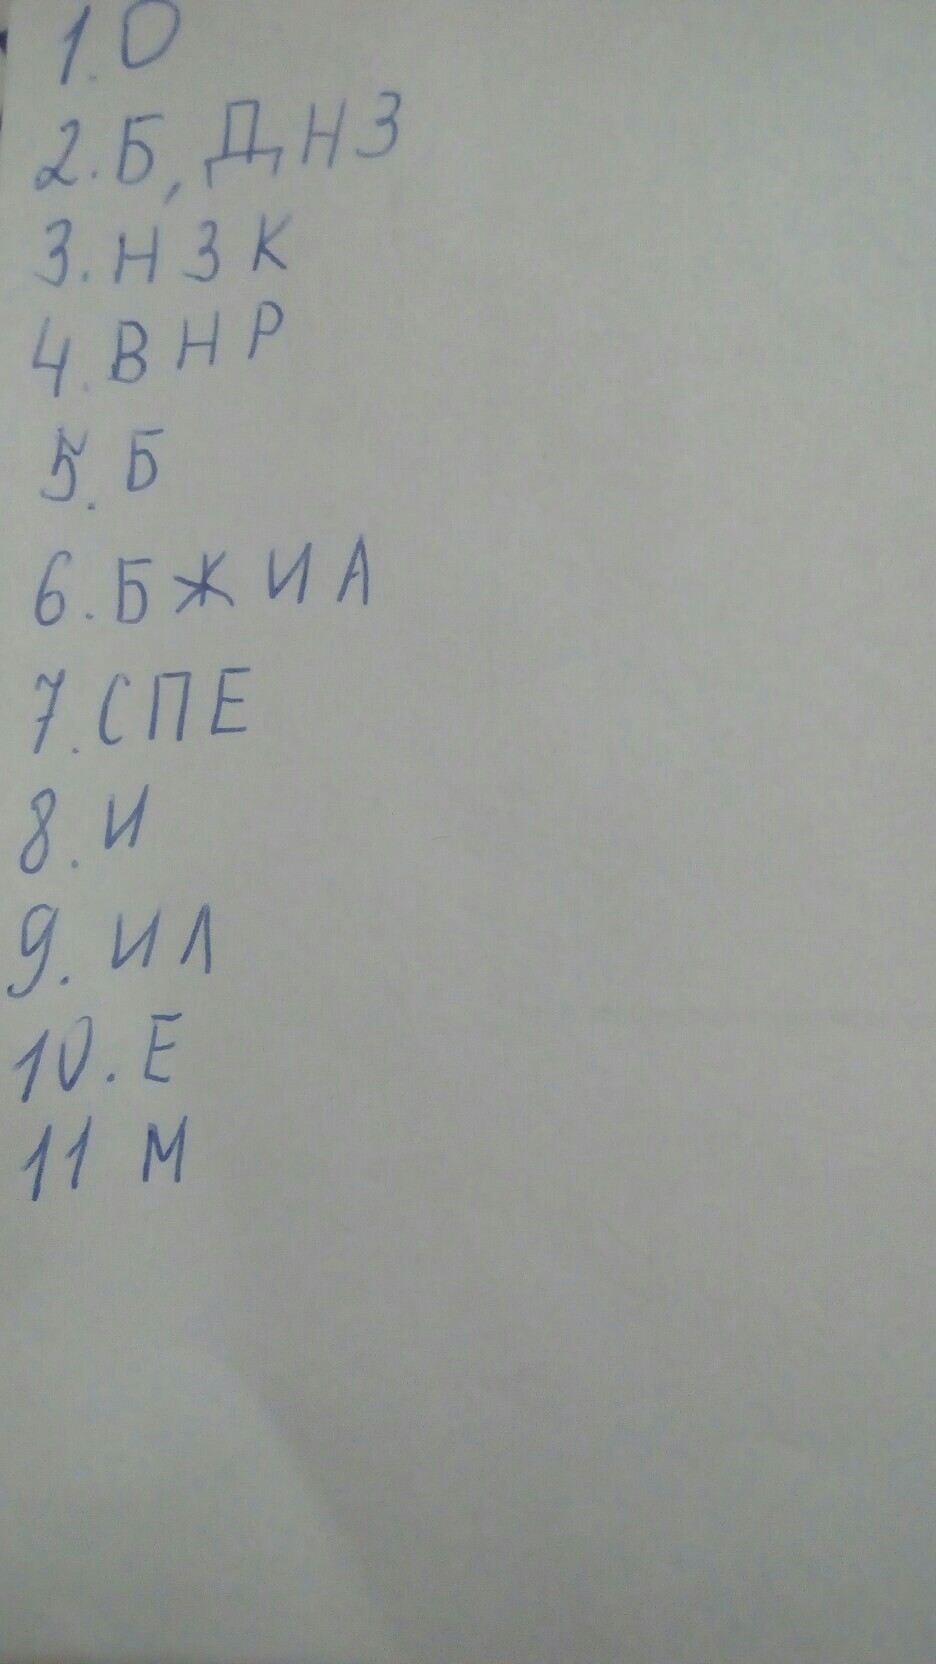 1. О
2. Б, Д Н З
3. Н З К
4. В Н Р
5. Б
6. Б Ж И А
7. С П Е
8. И
9. И Л
10. Е
11 М